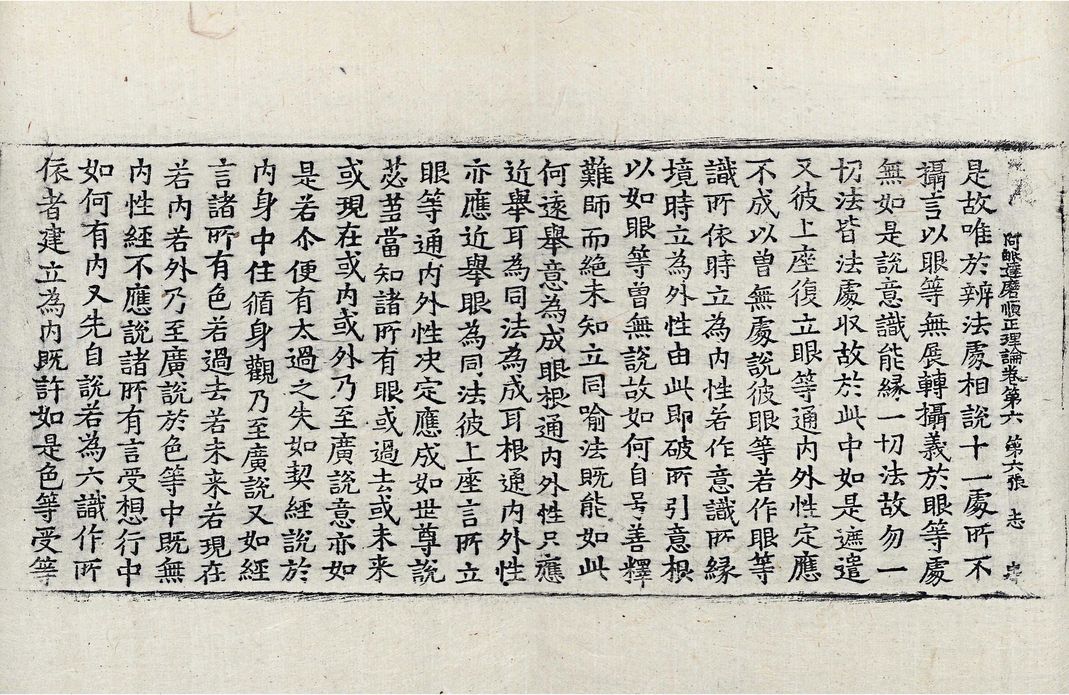 阿毗達磨順正理論卷第六 第六張 志
是故唯於辨法處相說十一處所不
攝言以眼等無展轉攝義於眼等處
無如是說意識能緣一切法故勿一
切法皆法處收故於此中如是遮遣
又彼上座復立眼等通內外性定應
不成以曾無處說彼眼等若作眼等
識所依時立為內性若作意識所緣
境時立為外性由此即破所引意根
以如眼等曾無說故如何自号善釋
難師而絕未知立同喻法既能如此
何遠舉意為成眼根通內外性只應
近舉耳為同法為成耳根通內外性
亦應近舉眼為同法彼上座言所立
眼等通內外性決定應成如世尊說
苾蒭當知諸所有眼或過去或未来
或現在或內或外乃至廣說意亦如
是若尒便有太過之失如契經說於
內身中住循身觀乃至廣說又如經
言諸所有色若過去若未来若現在
若內若外乃至廣說於色等中既無
內性經不應說諸所有言受想行中
如何有內又先自說若為六識作所
依者建立為內既許如是色等受等